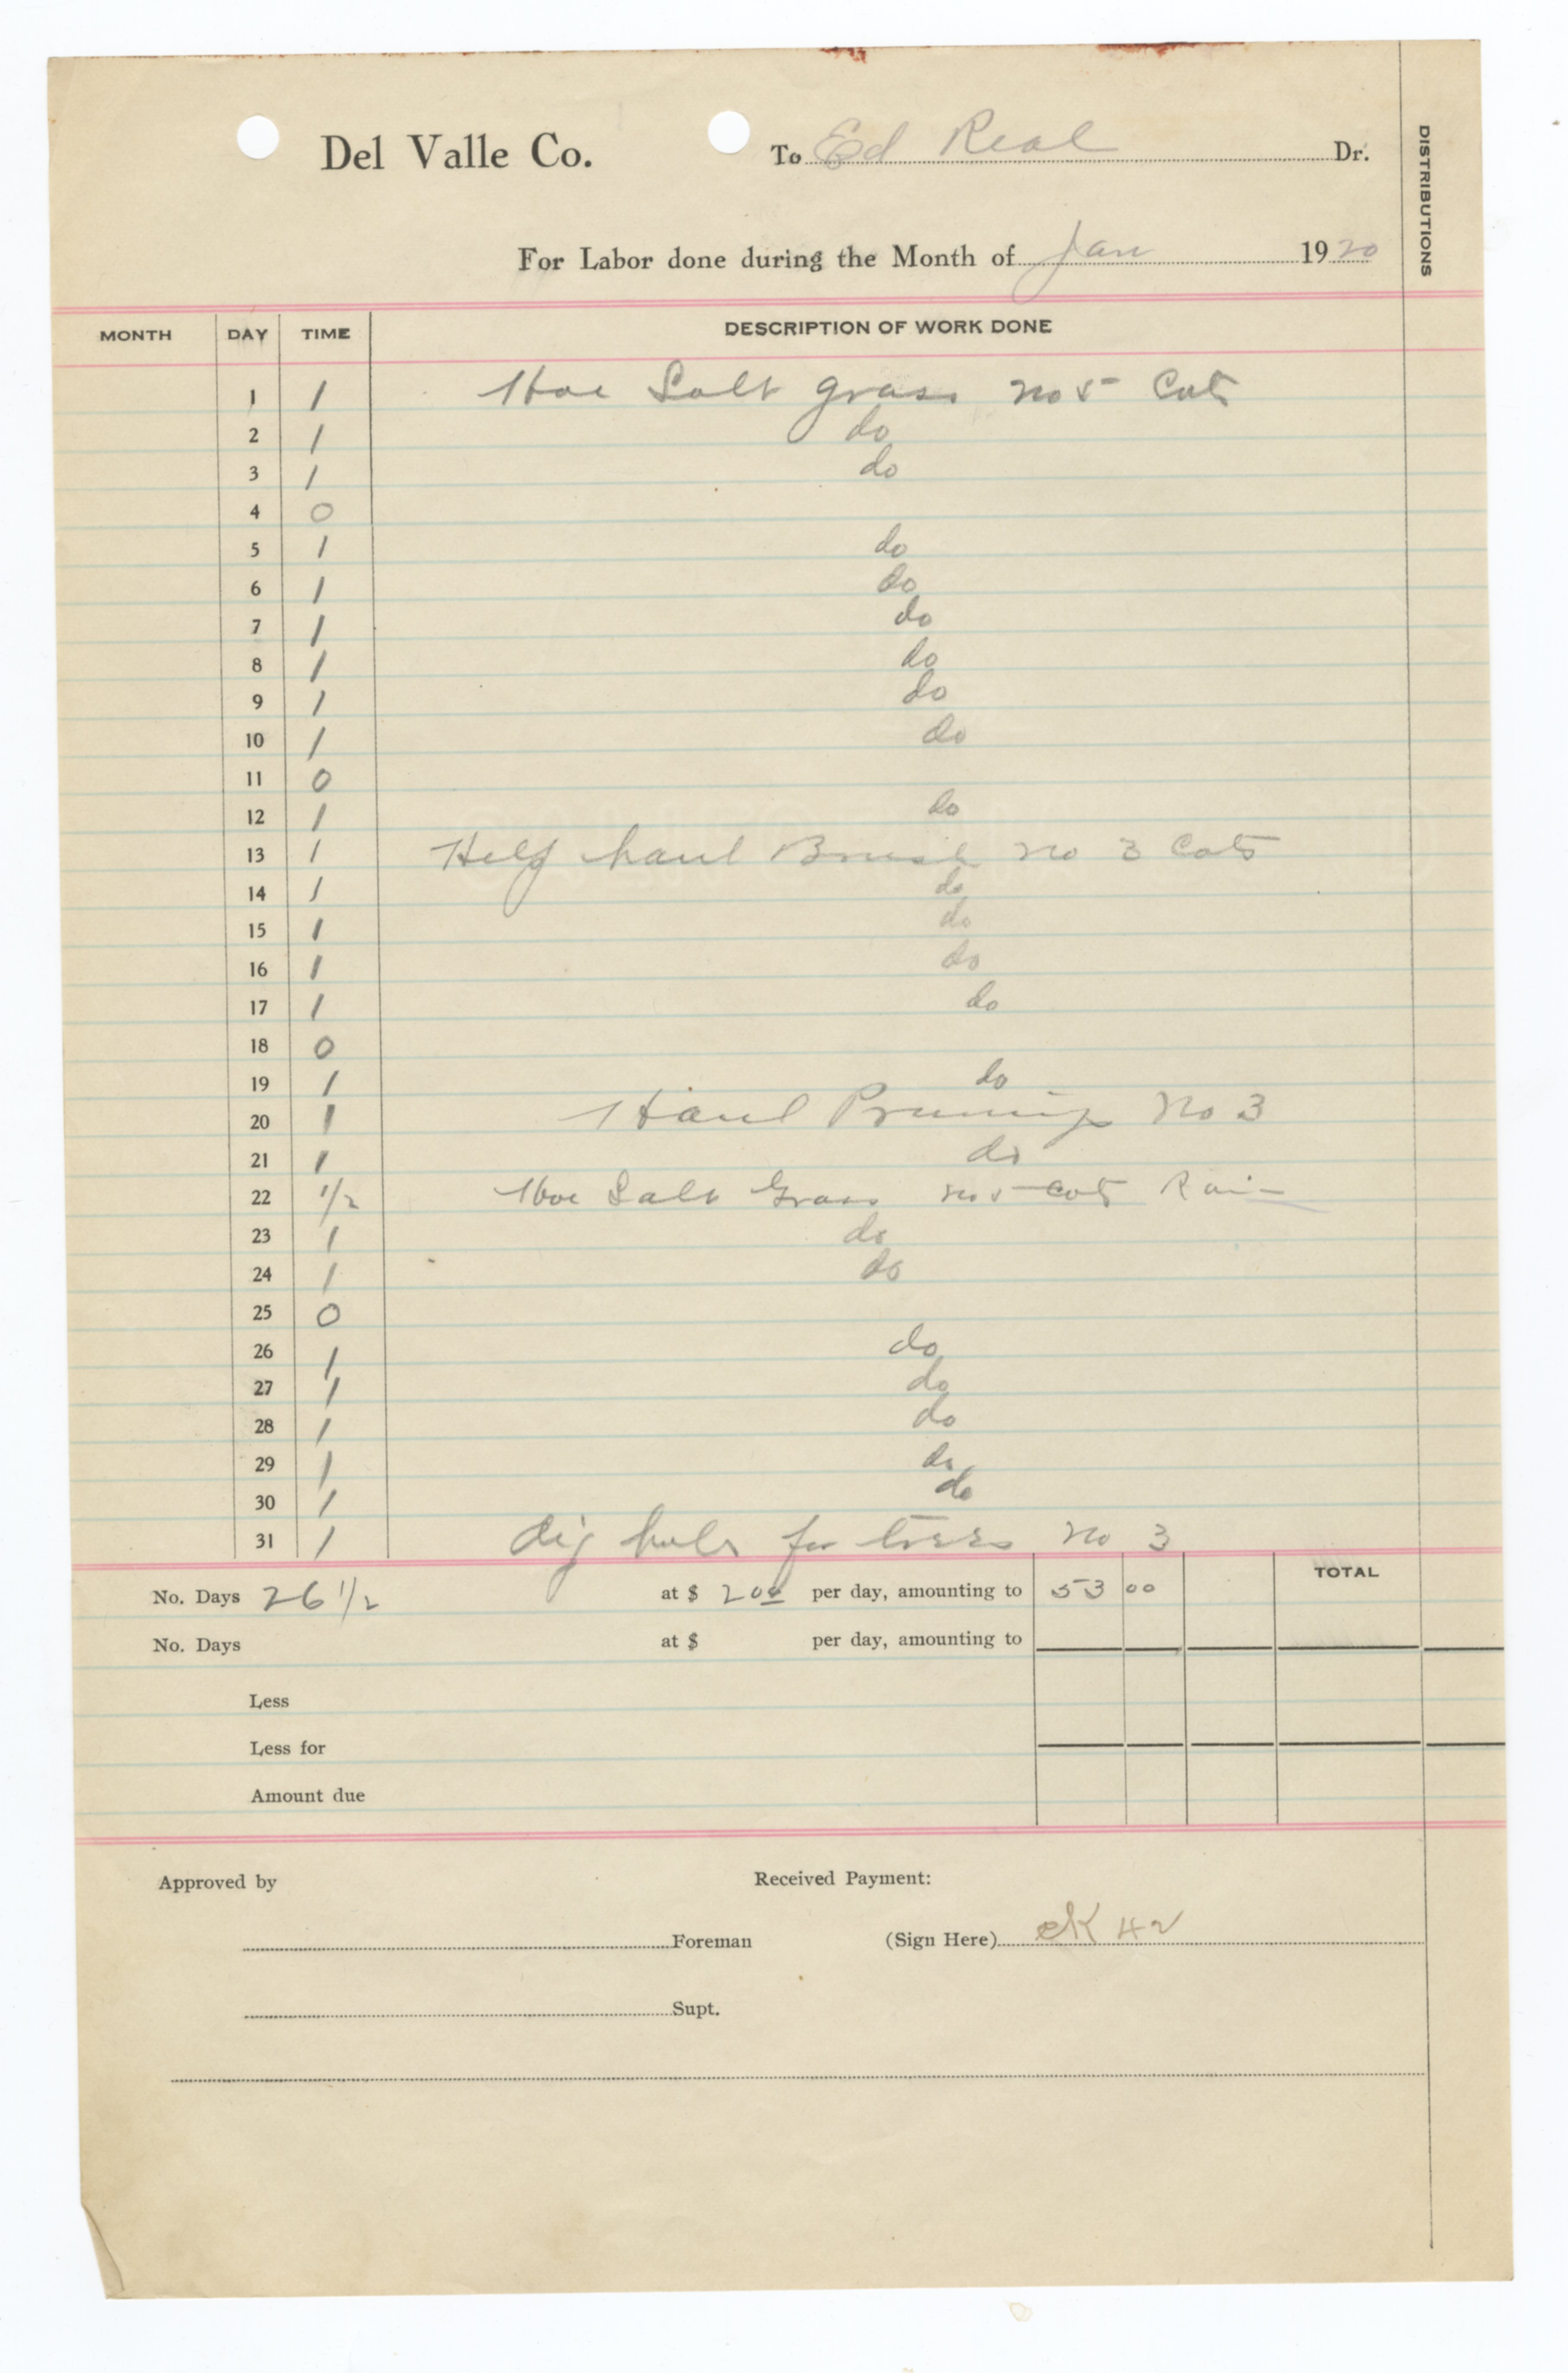 Del Valle Co. To Ed Real Dr.
DISTRIBUTIONS
For Labor done during the Month of Jan 1920
MONTH DAY TIME DESCRIPTION OF WORK DONE
1 1 Hoe Salt grass no 5 Cots
2 1 do
3 1 do
4 0
5 1 do
6 1 do
7 1 do
8 1 do
9 1 do
10 1 do
11 0
12 1 do
13 1 Help haul Brush no 3 Cots
14 1 do
15 1 do
16 1 do
17 1 do
18 0
19 1 do
20 1 Haul Prunings No 3
21 1 do
22 1/2 Hoe Salt Grass no 5 cots Rain
23 1 do
24 1 do
25 0
26 1 do
27 1 do
28 1 do
29 1 do
30 1 do
31 1 dig holes for trees no 3
TOTAL
No. Days 26 1/2 at $ 2 00 per day, amounting to 53 00
No. Days at $ per day, amounting to
Less
Less for
Amount due
Approved by Received Payment:
Foreman (Sign Here) cK 42
Supt.